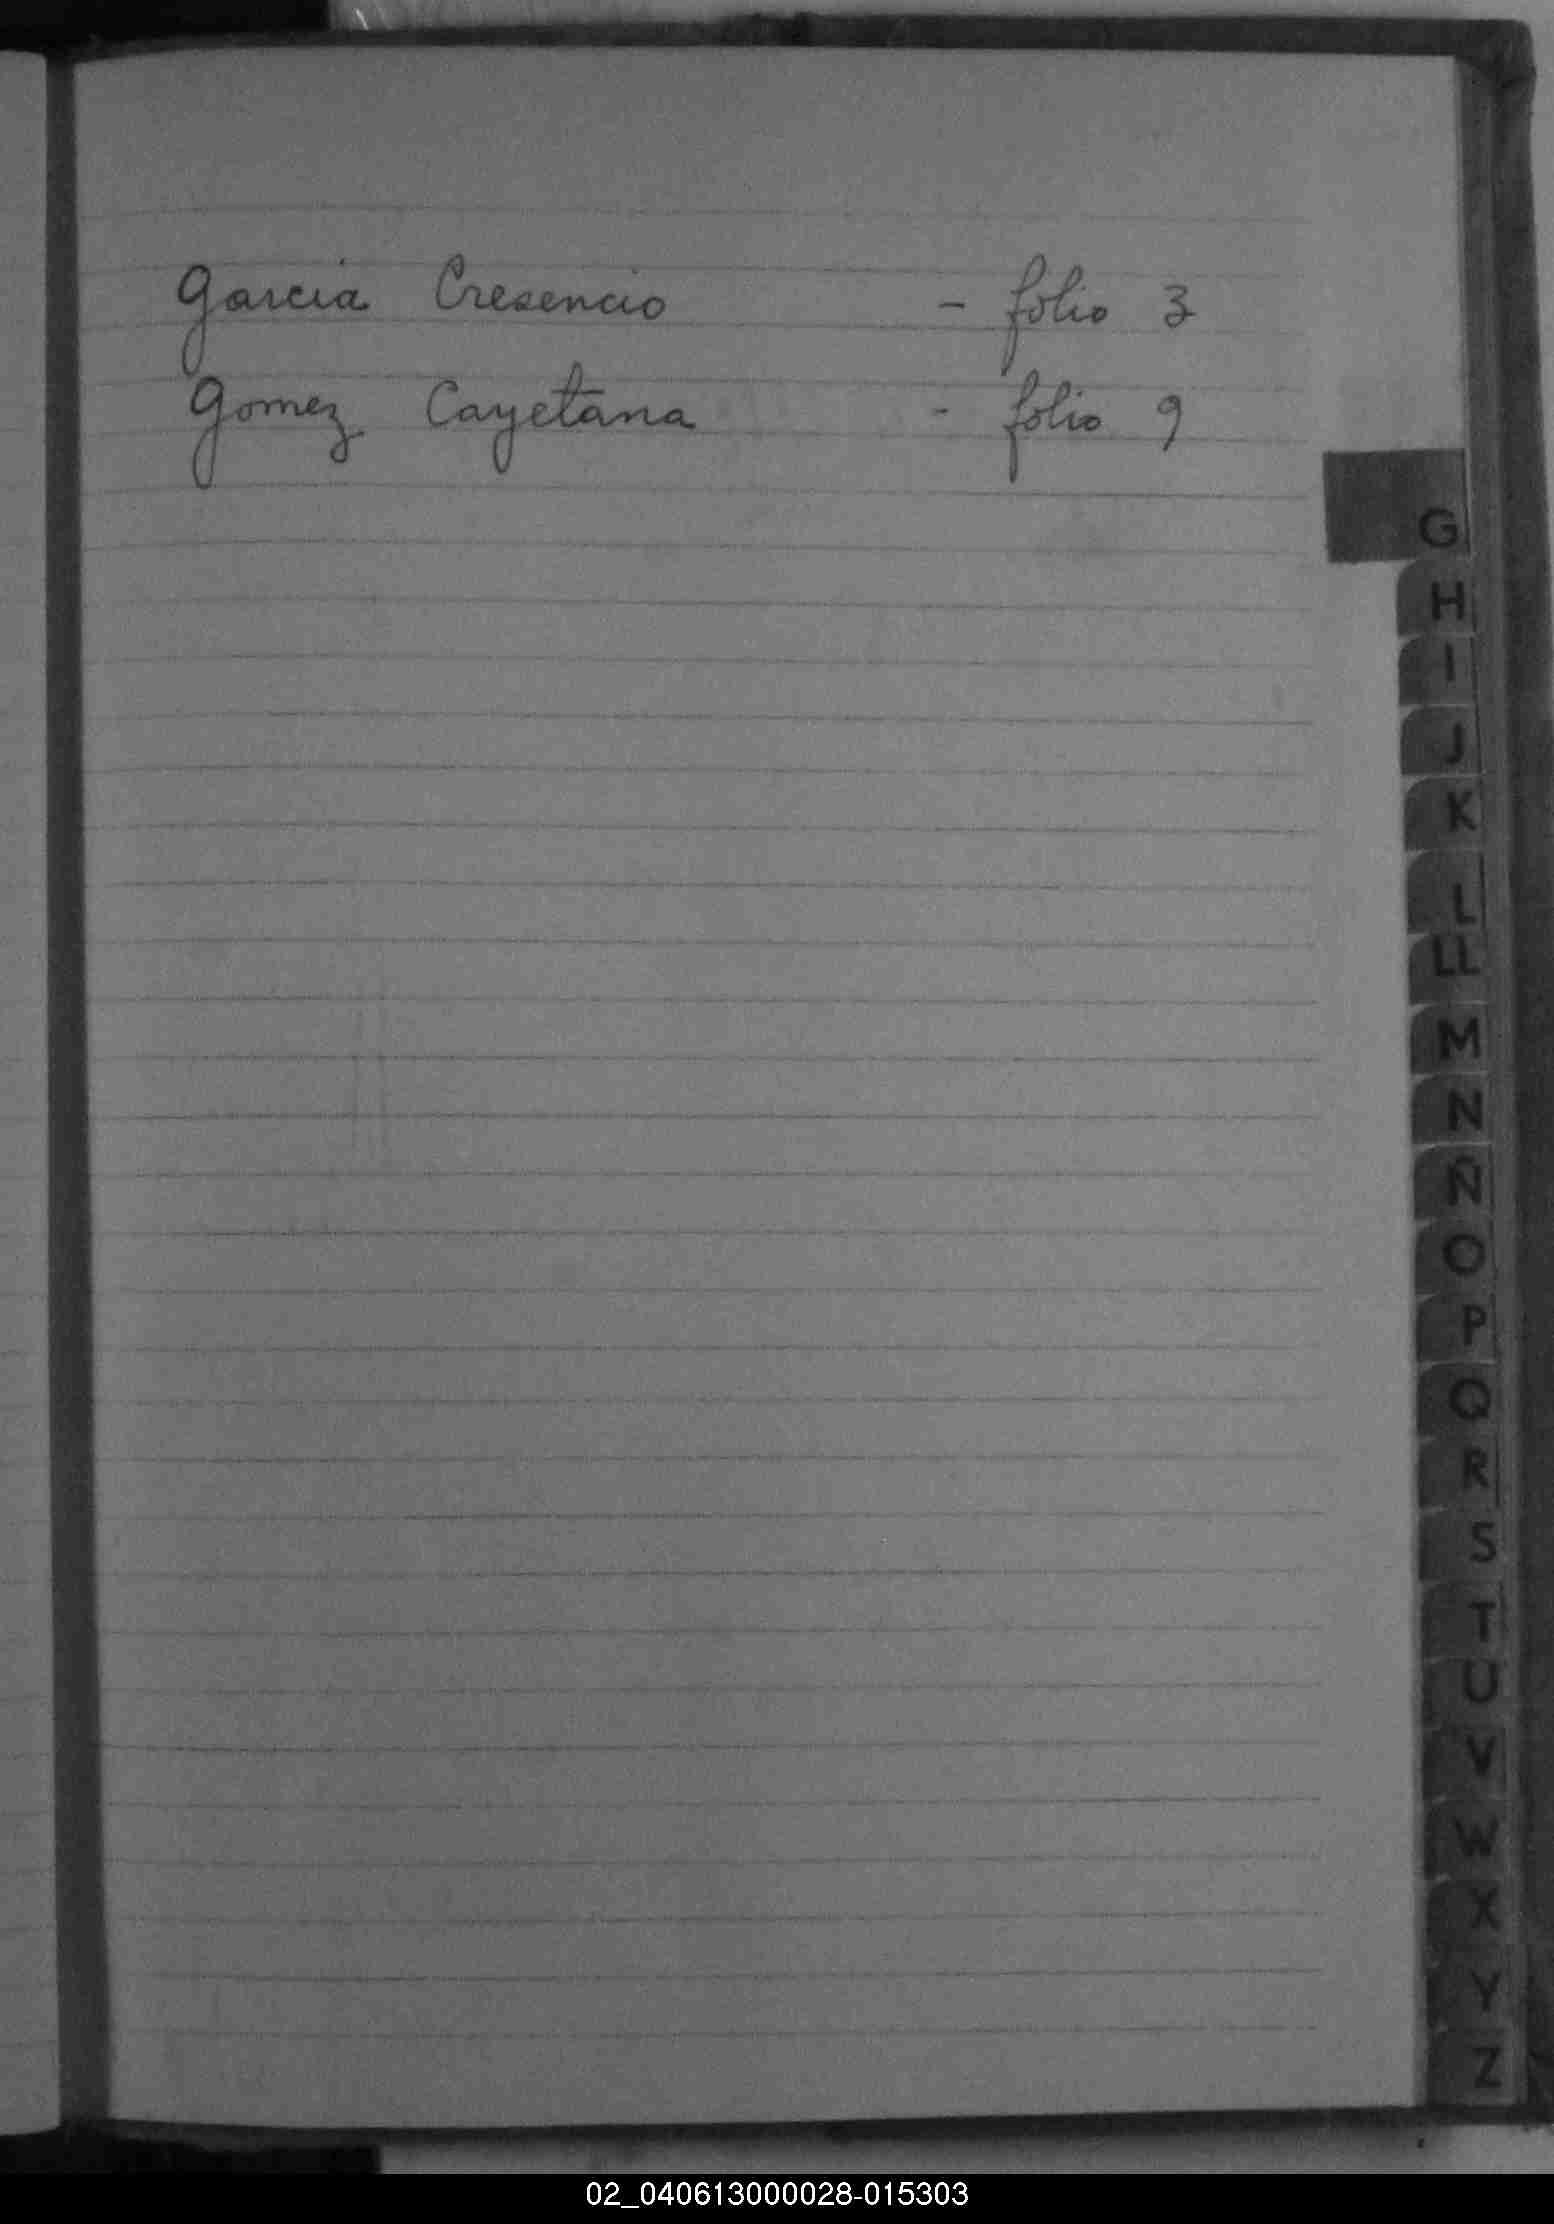 Garcia Cresencio - folio 3
Gomez Cayetana - folio 9
G
H
I
J
K
L
LL
M
N
Ñ
O
P
Q
R
S
T
U
V
W
X
Y
Z
02_040613000028-015303